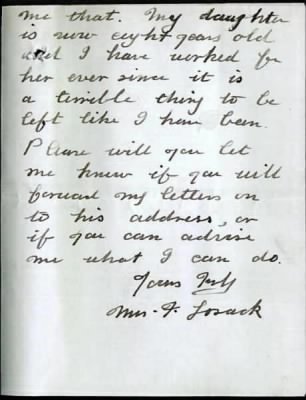 me that. My daughter
is now eight years old
and I have worked for
her ever since it is
a terrible thing to be
left like I have been.
Please will you let
me know if you will
forward my letters on
to his address, or
if you can advise
me what I can do.
Yours Truly
Mrs. F. Losack